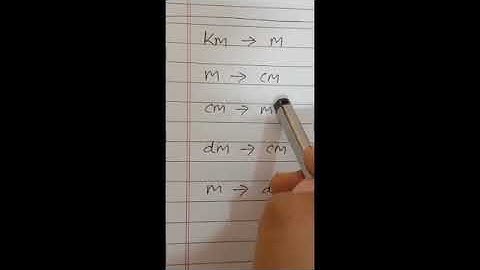 Km → m
m → cm
cm →
dm → cm
m →